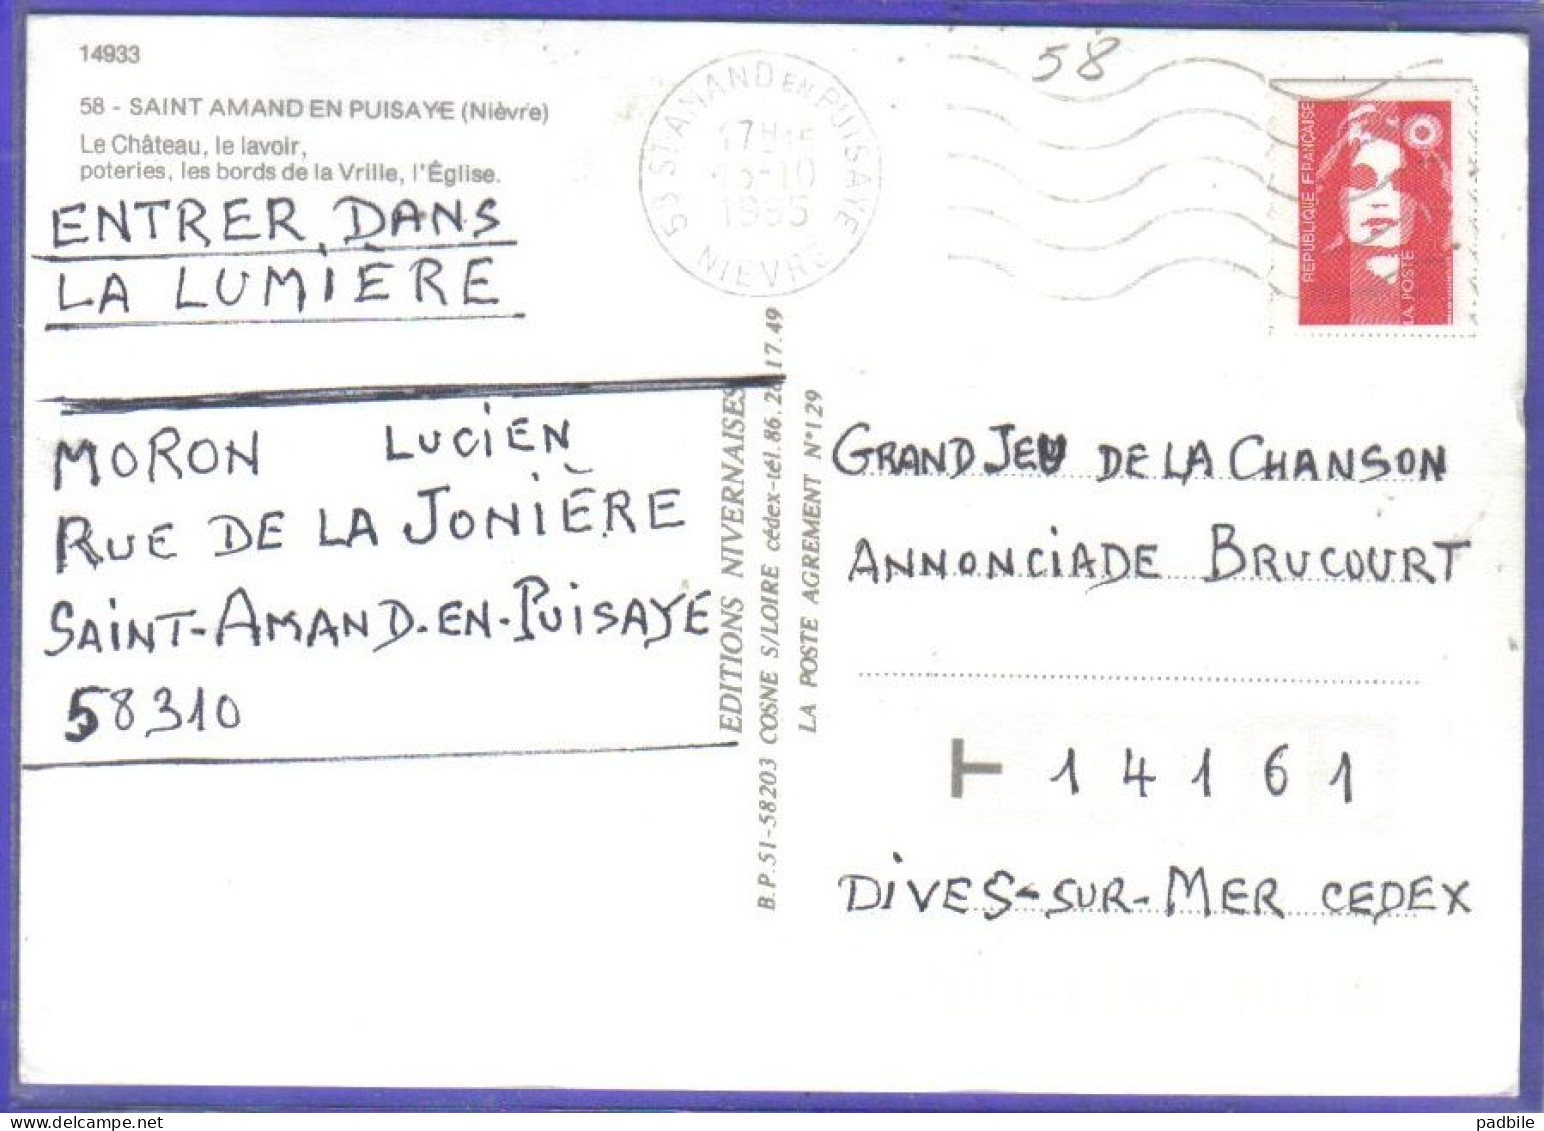 14933
58 - SAINT AMAND EN PUISAYE (Nièvre)
Le Château, le lavoir,
poteries, les bords de la Vrille, l'Église.
ENTRER DANS
LA LUMIÈRE
MORON LUCIEN
RUE DE LA JONIÈRE
SAINT-AMAND-EN-PUISAYE
58310
58 ST AMAND EN PUISAYE
NIEVRE
1995
58
REPUBLIQUE FRANÇAISE
LA POSTE
EDITIONS NIVERNAISES
B.P.51-58203 COSNE S/LOIRE cédex-tél.86.28.17.49
LA POSTE AGREMENT N°129
GRAND JEU DE LA CHANSON
ANNONCIADE BRUCOURT
14161
DIVES-SUR-MER CEDEX
padbile